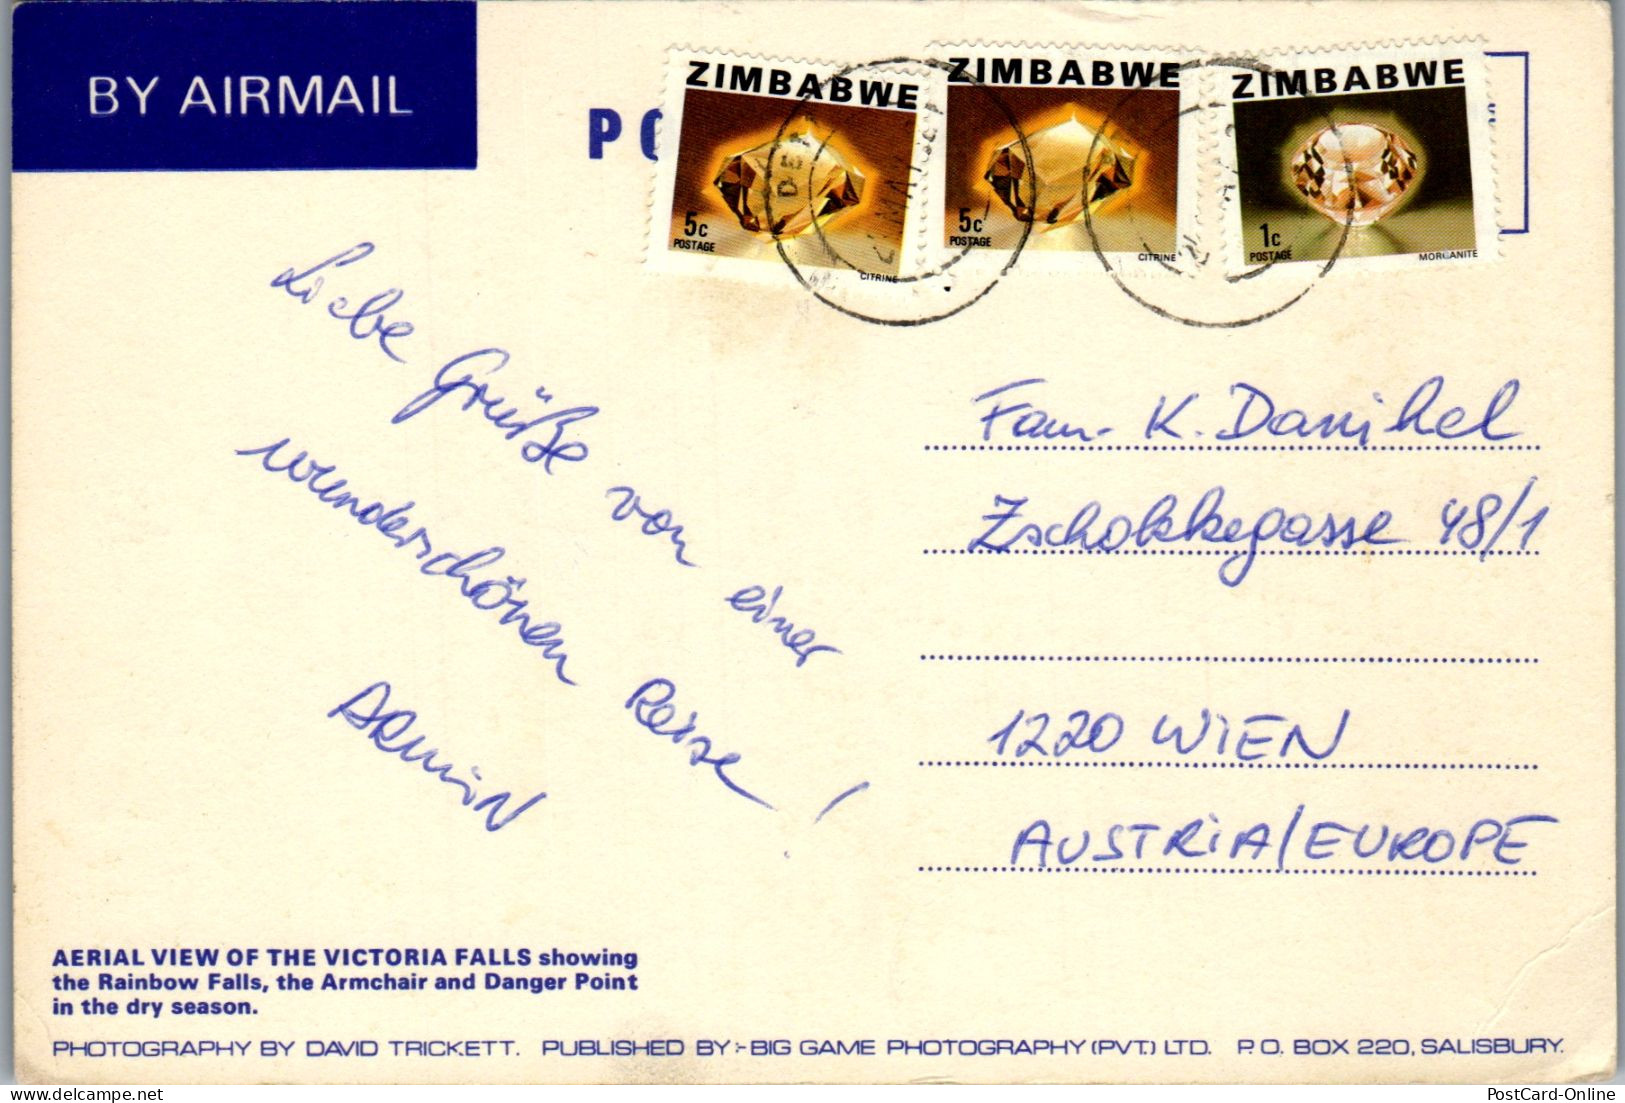 BY AIRMAIL
PO
ZIMBABWE
5c
POSTAGE
CITRINE
ZIMBABWE
5c
POSTAGE
CITRINE
ZIMBABWE
1c
POSTAGE
MORGANITE
Liebe Grüße von einer
wunderschönen Reise!
ARMIN
Fam. K. Danihel
Zschokkegasse 48/1
1220 WIEN
AUSTRIA/EUROPE
AERIAL VIEW OF THE VICTORIA FALLS showing
the Rainbow Falls, the Armchair and Danger Point
in the dry season.
PHOTOGRAPHY BY DAVID TRICKETT. PUBLISHED BY:-BIG GAME PHOTOGRAPHY (PVT.) LTD. P.O. BOX 220, SALISBURY.
PostCard-Online